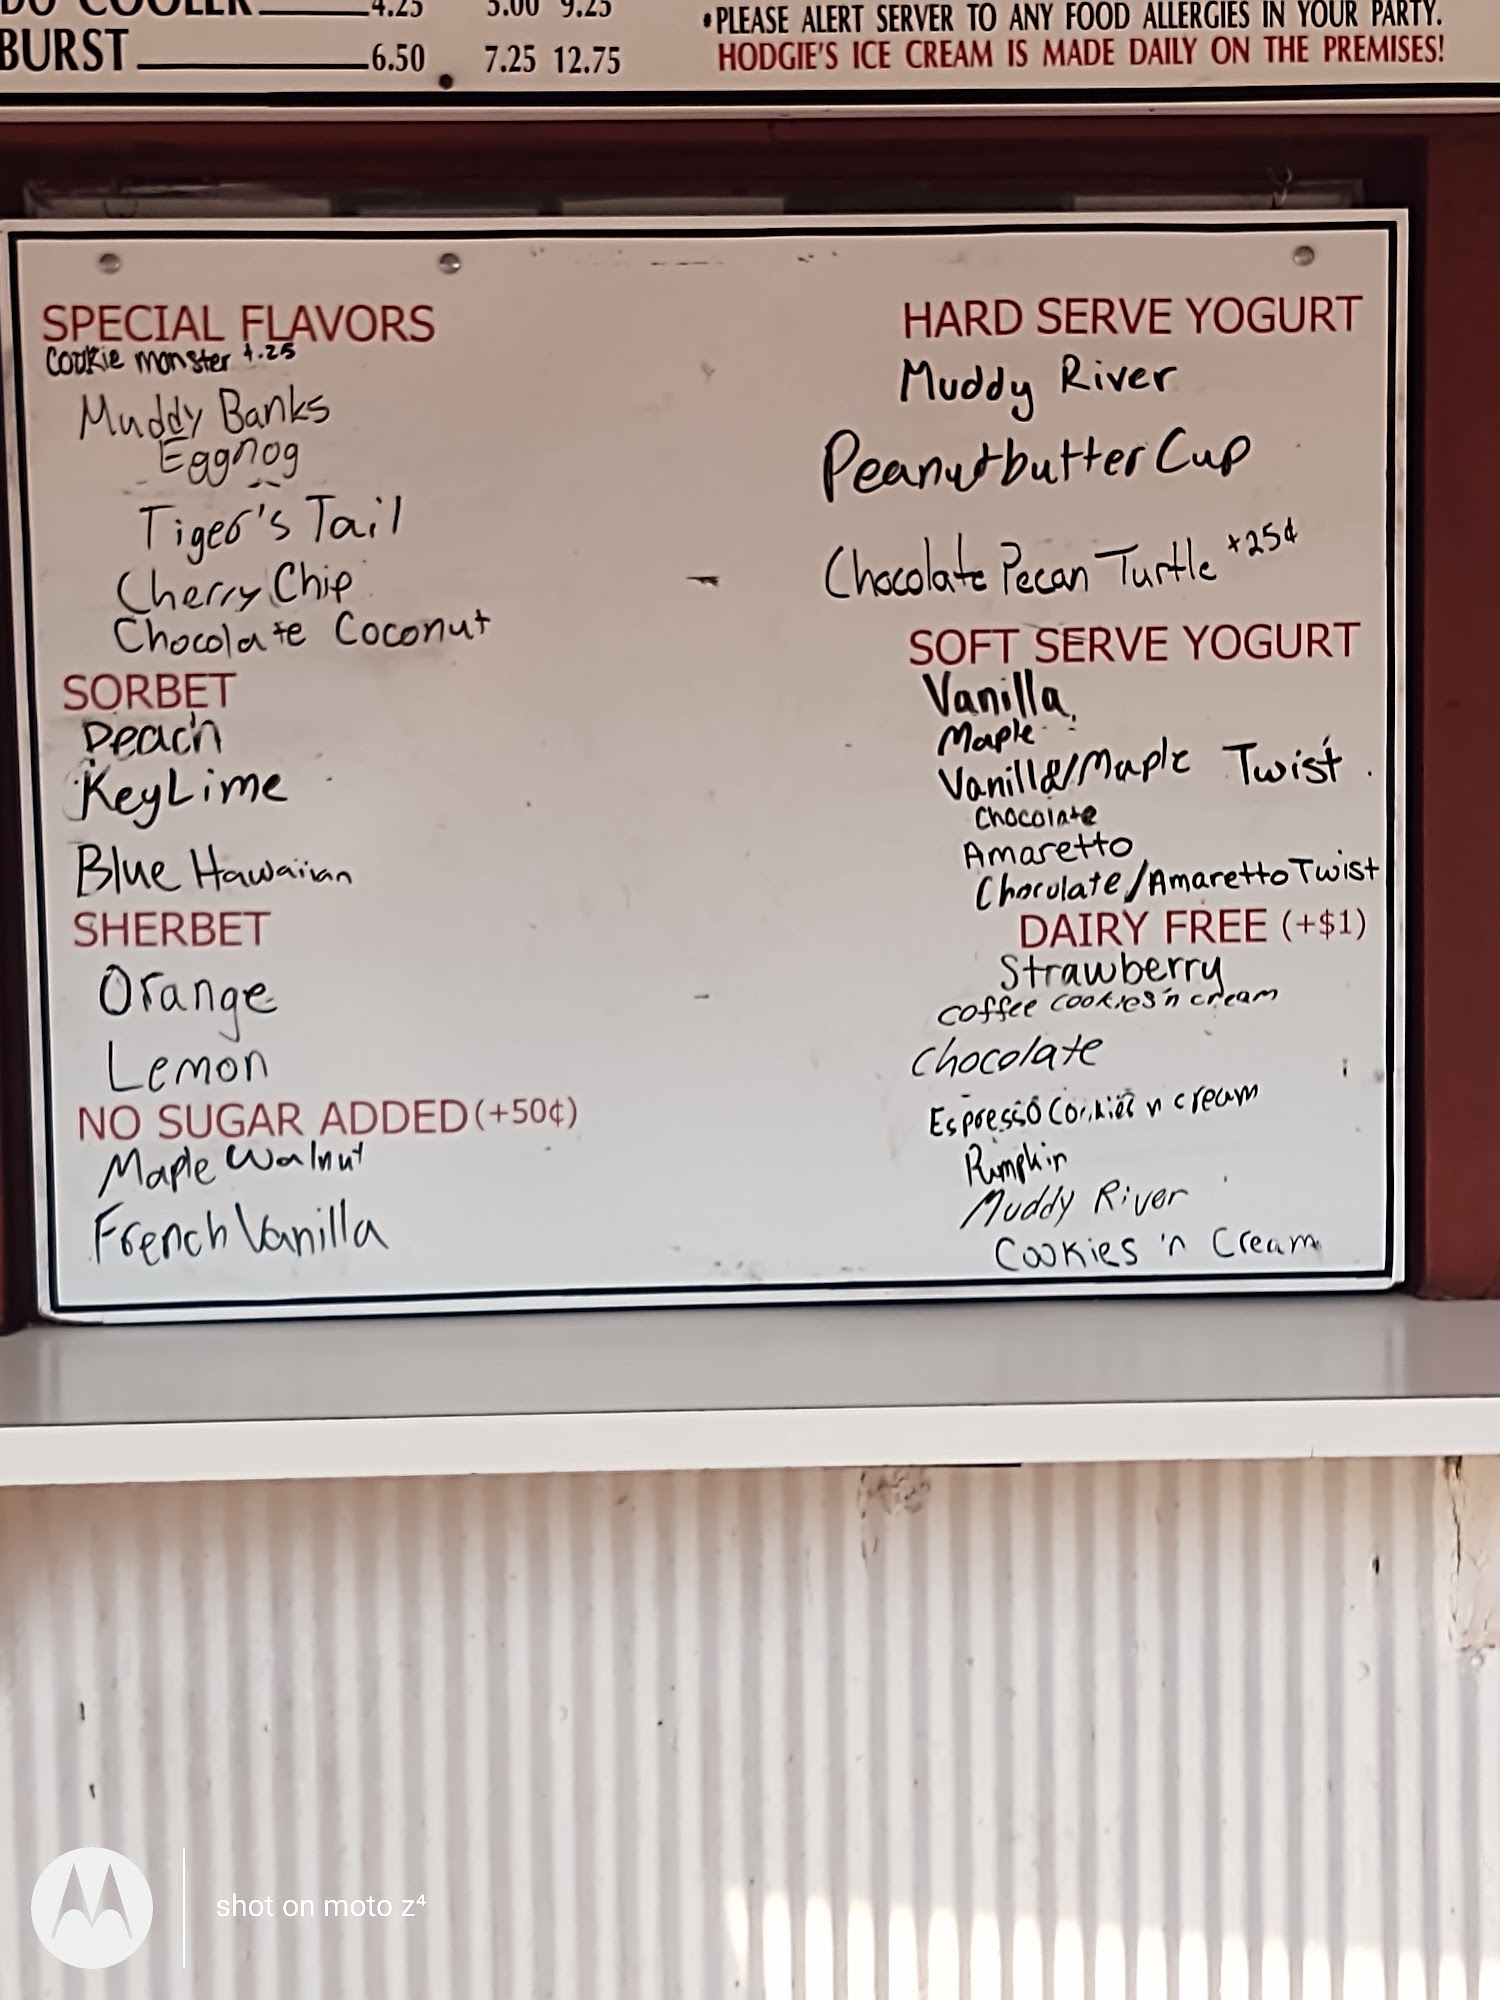 COOLER 4.25 5.00 9.25
BURST 6.50 7.25 12.75
•PLEASE ALERT SERVER TO ANY FOOD ALLERGIES IN YOUR PARTY.
HODGIE'S ICE CREAM IS MADE DAILY ON THE PREMISES!
SPECIAL FLAVORS
Cookie monster +.25
Muddy Banks
Eggnog
Tiger's Tail
Cherry Chip
Chocolate Coconut
SORBET
Peach
Key Lime
Blue Hawaiian
SHERBET
Orange
Lemon
NO SUGAR ADDED (+50¢)
Maple Walnut
French Vanilla
HARD SERVE YOGURT
Muddy River
Peanutbutter Cup
Chocolate Pecan Turtle +25¢
SOFT SERVE YOGURT
Vanilla
Maple
Vanilla/Maple Twist
Chocolate
Amaretto
Chocolate/Amaretto Twist
DAIRY FREE (+$1)
Strawberry
coffee cookies'n cream
Chocolate
Espresso Cookies n cream
Pumpkin
Muddy River
Cookies 'n Cream
shot on moto z⁴